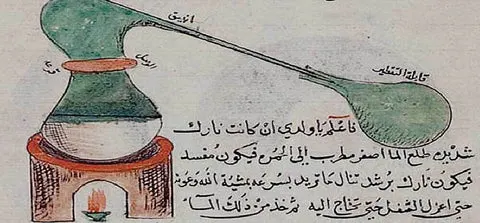 انبيق
قابلة التقطير
فاعلم يا ولدي ان كانت نارك
شديده طلع الما اصفر مطرب الي الحمره فيكون مفسد
فيكون نارك برشد تنال ما تريد بسرعه بمشية الله وعونه
حتى اعزل الثفل حتي تحتاج اليه ثم خذ من ذلك الماء